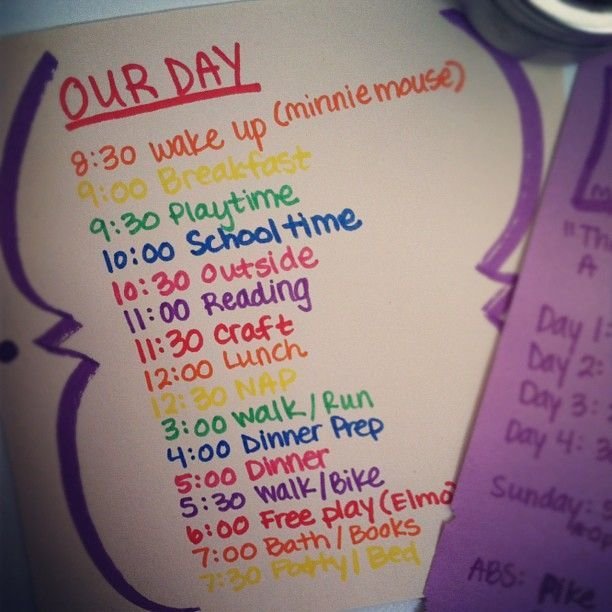 OUR DAY
8:30 wake up (minnie mouse)
9:00 Breakfast
9:30 Playtime
10:00 School time
10:30 outside
11:00 Reading
11:30 craft
12:00 Lunch
12:30 NAP
3:00 walk/Run
4:00 Dinner Prep
5:00 Dinner
5:30 walk/Bike
6:00 Free play (Elmo)
7:00 Bath/Books
7:30 Potty/Bed
A
Day 1:
Day 2:
Day 3:
Day 4:
Sunday:
ABS: